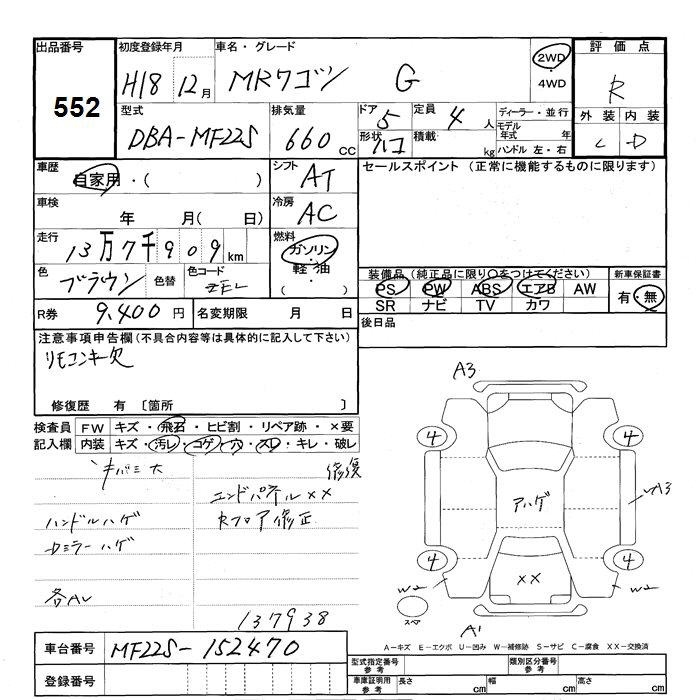 出品番号 初度登録年月 車名・グレード 評価点
552 H18 12月 MRワゴン G 2WD ・4WD R
型式 排気量 ドア 定員 ディーラー・並行 外装 内装
DBA-MF22S 660cc 5 4人 モデル年式 年 C D
形状 ハコ 積載 kg ハンドル 左・右
車歴 シフト セールスポイント (正常に機能するものに限ります)
自家用・( ) AT
車検 冷房
年 月( 日) AC
走行 燃料
13万7千909km ガソリン
色 色替 色コード 軽油
ブラウン ZEL ・( )
装備品(純正品に限り○をつけてください) 新車保証書
PS PW ABS エアB AW 有・無
SR ナビ TV カワ
R券 9,400円 名変期限 月 日 後日品
注意事項申告欄(不具合内容等は具体的に記入して下さい)
リモコンキー欠
修復歴 有 〔箇所 〕
検査員 FW キズ・飛石・ヒビ割・リペア跡・×要
記入欄 内装 キズ・汚レ・コゲ・穴・スレ・キレ・破レ
キバミ大 修復
エンドパネル××
ハンドルハゲ Rフロア修正
Dミラーハゲ
各AU
137938
A3
4 4
アハゲ A3
4 4
W2 ×× W2
スペア A1
A-キズ E-エクボ U-凹み W-補修跡 S-サビ C-腐食 XX-交換済
車台番号 MF22S-152470
登録番号
型式指定番号 参考 類別区分番号 参考
車庫証明用 参考 長さ cm 幅 cm 高さ cm